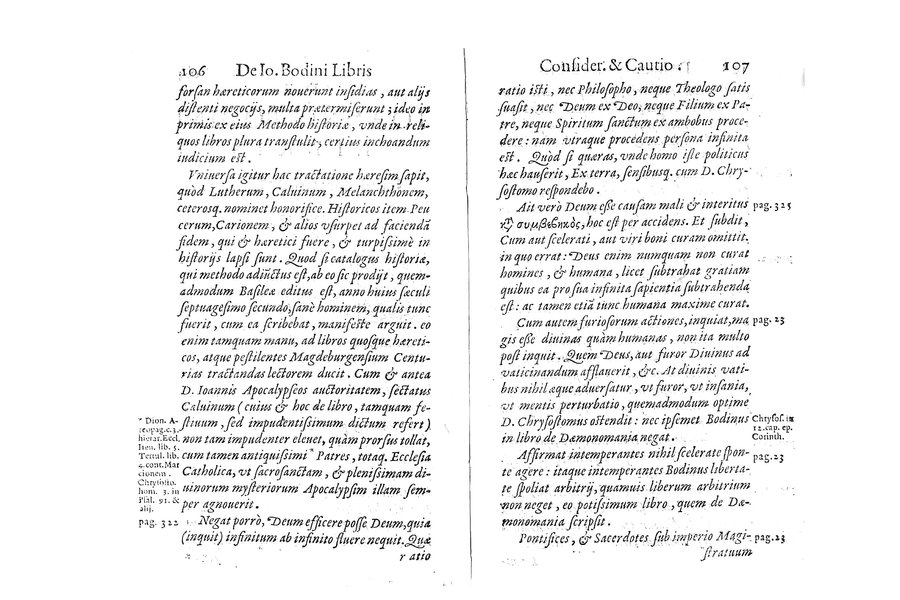 106 De Io. Bodini Libris
forsan hæreticorum nouerunt insidias, aut alijs
distenti negocijs, multa prætermiserunt; ideo in
primis ex eius Methodo historiæ, vnde in reli-
quos libros plura transtulit, certius inchoandum
iudicium est.
Vniuersa igitur hac tractatione hæresim sapit,
quòd Lutherum, Caluinum, Melanchthonem,
ceterosq. nominet honorifice. Historicos item Peu
cerum, Carionem, & alios vsurpet ad faciendã
fidem, qui & hæretici fuere, & turpissimè in
historijs lapsi sunt. Quod si catalogus historiæ,
qui methodo adiũctus est, ab eo sic prodijt, quem-
admodum Basileæ editus est, anno huius sæculi
septuagesimo secundo, sanè hominem, qualis tunc
fuerit, cum ea scribebat, manifeste arguit. eo
enim tamquam manu, ad libros quosque hæreti-
cos, atque pestilentes Magdeburgensium Centu-
rias tractandas lectorem ducit. Cum & antea
D. Ioannis Apocalypseos auctoritatem, sectatus
Caluinum (cuius & hoc de libro, tamquam fe-
stiuum, sed impudentissimum dictum refert)
non tam impudenter eleuet, quàm prorsus tollat,
cum tamen antiquissimi* Patres, totaq. Ecclesia
Catholica, vt sacrosanctam, & plenissimam di-
uinorum mysteriorum Apocalypsim illam sem-
per agnouerit.
* Dion. A-
reopag. c. 3.
hierar. Eccl.
Iren. lib. 5.
Tertul. lib.
4. cont. Mar
cionem.
Chrysosto.
hom. 3. in
Psal. 91. &
alij.
pag. 322 Negat porrò, Deum efficere posse Deum, quia
(inquit) infinitum ab infinito fluere nequit. Quæ
ratio
Consider. & Cautio 107
ratio isti, nec Philosopho, neque Theologo satis
suasit, nec Deum ex Deo, neque Filium ex Pa-
tre, neque Spiritum sanctum ex ambobus proce-
dere: nam vtraque procedens persona infinita
est. Quòd si quæras, vnde homo iste politicus
hæc hauserit, Ex terra, sensibusq. cum D. Chry-
sostomo respondebo.
Ait verò Deum esse causam mali & interitus pag. 325
συμβεβηκὸς, hoc est per accidens. Et subdit,
Cum aut scelerati, aut viri boni curam omittit.
in quo errat: Deus enim numquam non curat
homines, & humana, licet subtrahat gratiam
quibus ea pro sua infinita sapientia subtrahenda
est: ac tamen etiũ tunc humana maxime curat.
Cum autem furiosorum actiones, inquiat, ma pag. 23
gis esse diuinas quàm humanas, non ita multo
post inquit. Quem Deus, aut furor Diuinus ad
vaticinandum afflauerit, &c. At diuinis vati-
bus nihil æque aduersatur, vt furor, vt insania,
vt mentis perturbatio, quemadmodum optime
D. Chrysostomus ostendit: nec ipsemet Bodinus
in libro de Dæmonomania negat.
Chrysos. in
12. cap. ep.
Corinth.
Affirmat intemperantes nihil scelerate spon- pag. 23
te agere: itaque intemperantes Bodinus liberta-
te spoliat arbitrij, quamuis liberum arbitrium
non neget, eo potissimum libro, quem de Dæ-
monomania scripsit.
Pontifices, & Sacerdotes sub imperio Magi- pag. 23
stratuum